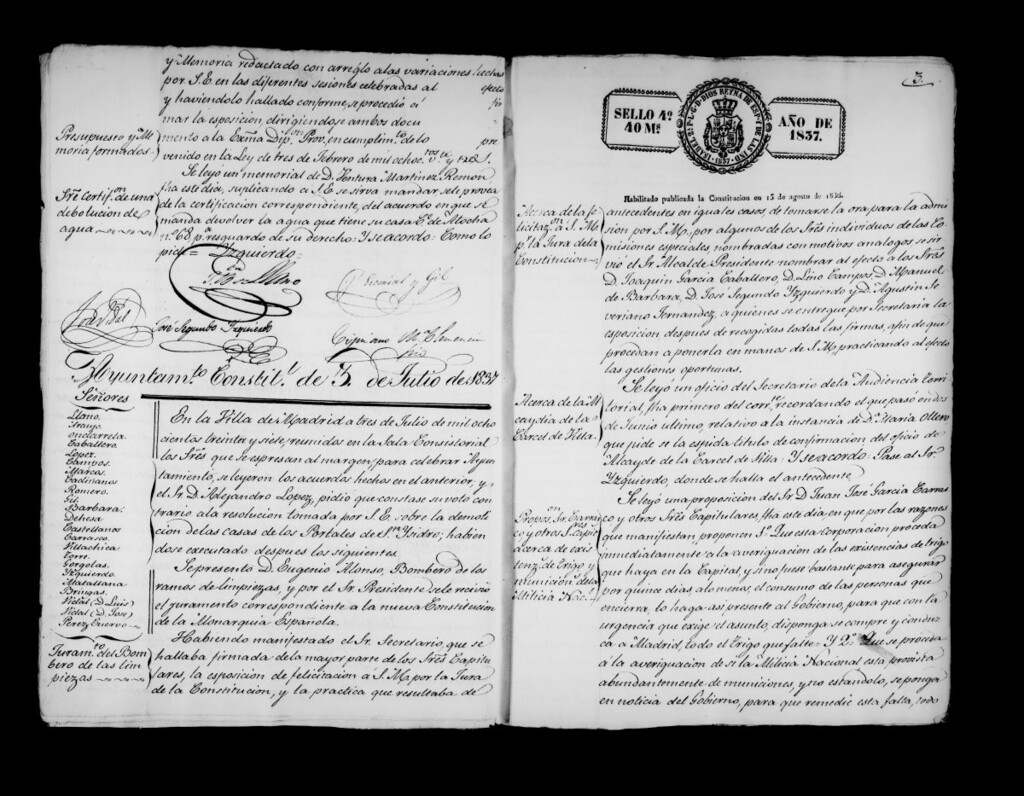 y Memoria redactado con arreglo alas variaciones hechas
por S.E. en las diferentes sesiones celebradas al efecto
y haviendolo hallado conforme, se procedió á fir
mar la esposicion, dirigiendose ambos docu
Presupuesto y Me
moria formados.
mento á la Exma. Dip.on Prov. en cumplim.to de lo pre
venido en la Ley de tres de Febrero de mil ochoc.tos
Se leyó un memorial de D. Ventura Martinez Remon
Sre certif.on de una
debolucion de
agua
fha este dia, suplicando á S.E. se sirva mandar se le provea
de la certificacion correspondiente, del acuerdo en que se
manda devolver la agua que tiene su casa C.e de Atocha
n.o 68 p.a resguardo de su derecho: Y se acordó: Como lo
pide = Yzquierdo
Vicorial y Gil
José Segundo Yzquierdo
Cipriano M.a Clemencin
Srio
Ayuntam.to Constit.l de 3 de Julio de 1837
Señores
Llano.
Araujo.
Caballero
Lopez.
Campos.
Marcos.
Romero.
Gil.
Barbara.
Dehesa
Castellanos
Carrasco.
Villachica
Torre.
Gorgolas.
Yzquierdo.
Matallana
Bringas.
Vidal (D. Luis)
Vidal (D. José)
Perez Cuervo
En la Villa de Madrid a tres de Julio de mil ocho
cientos treinta y siete, reunidos en la Sala Consistorial
los Sres que se espresan al margen, para celebrar Ayun
tamiento, se leyeron los acuerdos hechos en el anterior, y
el Sr. D. Alejandro Lopez, pidió que constase su voto con
trario á la resolucion tomada por S.E. sobre la demoli
cion de las casas de los Portales de S.n Ysidro; habien
dose executado despues los siguientes.
Se presentó D. Eugenio Alonso, Bombero de los
ramos de limpiezas, y por el Sr. Presidente se le recivió
el juramento correspondiente a la nueva Constitucion
de la Monarquia Española.
Juram.to del Bom
bero de las lim
piezas
Habiendo manifestado el Sr. Secretario, que se
hallaba firmada de la mayor parte de los Sres Capitu
lares, la esposicion de felicitacion á S.M. por la Jura
de la Constitucion, y la practica que resultaba de
3.
SELLO 4º
40 Ms
AÑO DE
1837.
Habilitado publicada la Constitucion en 15 de agosto de 1836.
Acerca de la fe
licitac.on á S.M.
p.r la Jura de la
Constitucion
antecedentes en iguales casos, de tomarse la ora para la admi
sion por S.M. por algunos de los Sres individuos de las Co
misiones especiales, nombradas con motivos analogos se sir
vió el Sr. Alcalde Presidente nombrar al efecto a los Sres
D. Joaquin Garcia Caballero, D. Lino Campos, D. Manuel
de Barbara, D. José Segundo Yzquierdo y D. Agustin Se
veriano Fernandez, a quienes se entregue por Secretaria la
esposicion despues de recogidas todas las firmas, afin de que
procedan a ponerla en manos de S.M. practicando al efecto
las gestiones oportunas.
Acerca de la Al
caydia de la
Carcel de Villa
Se leyó un oficio del Secretario de la Audiencia Terri
torial, fha primero del corr.te, recordando el que pasó en dos
de Junio ultimo, relativo a la instancia de D.a Maria Ollero
que pide se la espida titulo de confirmacion del oficio de
Alcayde de la Carcel de Villa: Y se acordó: Pase al Sr.
Yzquierdo, donde se halla el antecedente.
Propos.on Sr. Carras
co y otros S.res Capit.
acerca de exis
tenz.a de trigo y
municion.s de la
Milicia Nac.
Se leyó una proposicion del Sr. D. Juan José Garcia Carras
co y otros Sres Capitulares, fha este dia, en que por las razones
que manifiestan proponen 1.º Que esta corporacion proceda
inmediatamente a la averiguacion de las existencias de trigo
que haya en la Capital, y si no fuese bastante para asegurar
por quince dias alo menos, el consumo de las personas que
encierra, lo haga asi presente al Gobierno, para que con la
urgencia que exige el asunto, disponga se compre y conduz
ca a Madrid, todo el trigo que falte = Y 2.º Que se proceda
á la averiguacion de si la Milicia Nacional está provista
abundantemente de municiones, y no estandolo, se ponga
en noticia del Gobierno, para que remedie esta falta, todo